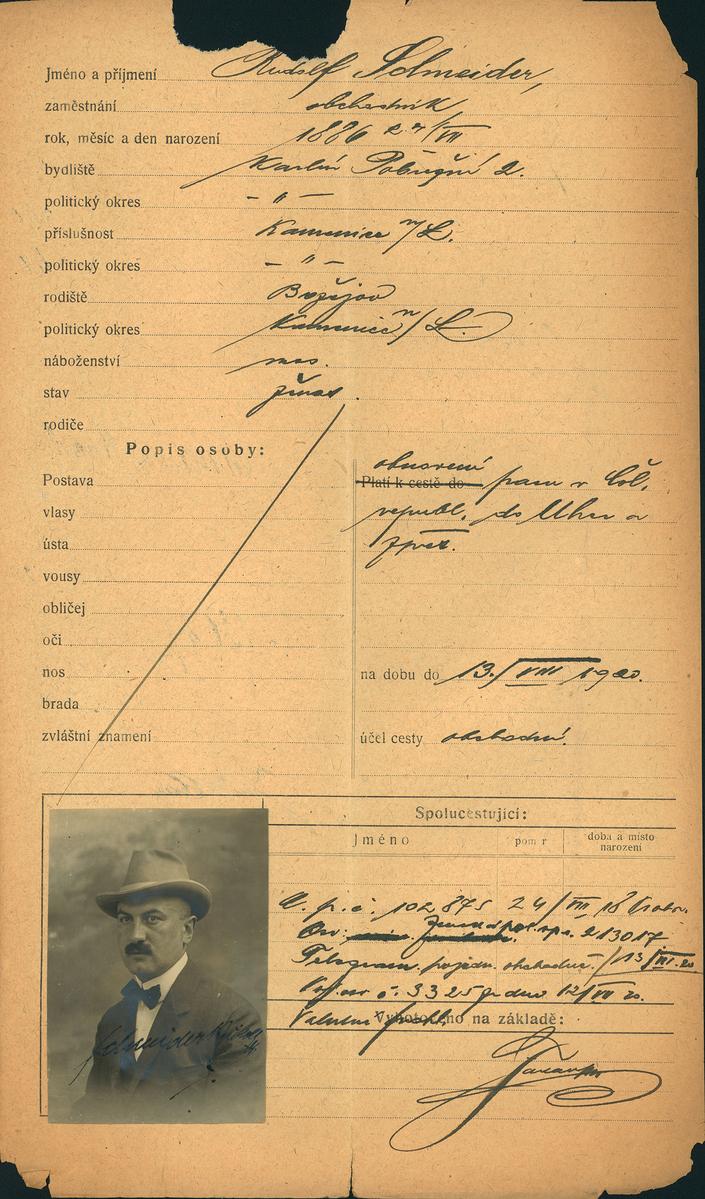 Jméno a příjmení Rudolf Schneider,
zaměstnání obchodník
rok, měsíc a den narození 1886 27/VII
bydliště Karlín Pobřežní 2.
politický okres – " –
příslušnost Kamenice n/L.
politický okres – " –
rodiště Božejov
politický okres Kamenice n/L.
náboženství mos.
stav ženat.
rodiče
Popis osoby:
Postava
vlasy
ústa
vousy
obličej
oči
nos
brada
zvláštní znamení
obnovení
Platí k cestě do pasu v čsl.
republ. do Uher a
zpět.
na dobu do 13./VIII 1920.
účel cesty obchodní.
Spolucestující:
Jméno pom r doba a místo
narození
č. 102875 24/VIII 18
213017
Telegram. obchodní. /13/VIII.20
č. 3325 12/VII 20.
Vyhotoveno na základě:
Schneider Rudolf